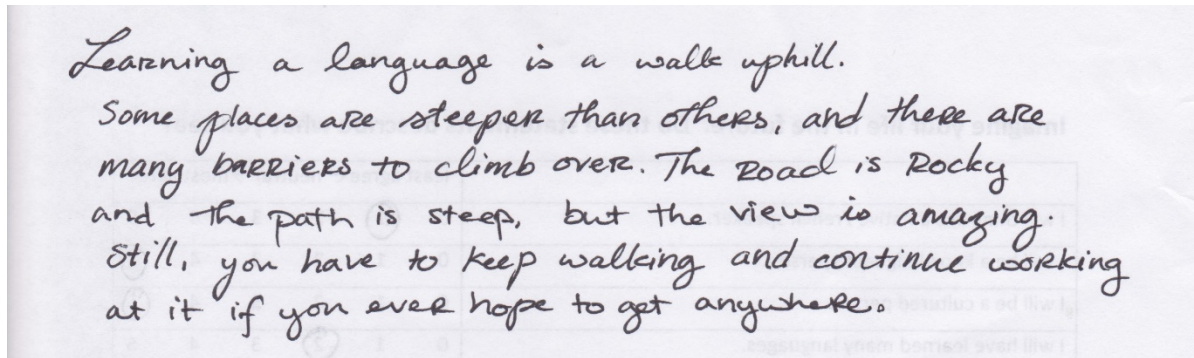 Learning a language is a walk uphill.
Some places are steeper than others, and there are
many barriers to climb over. The road is rocky
and the path is steep, but the view is amazing.
Still, you have to keep walking and continue working
at it if you ever hope to get anywhere.